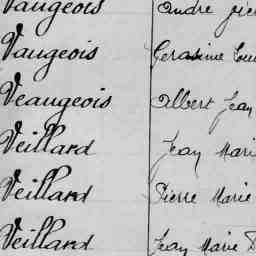 Vaugeois André
Vaugeois Gerasime
Veaugeois Albert Jean
Veillard Jean Marie
Veillard Pierre Marie
Veillard Jean Marie